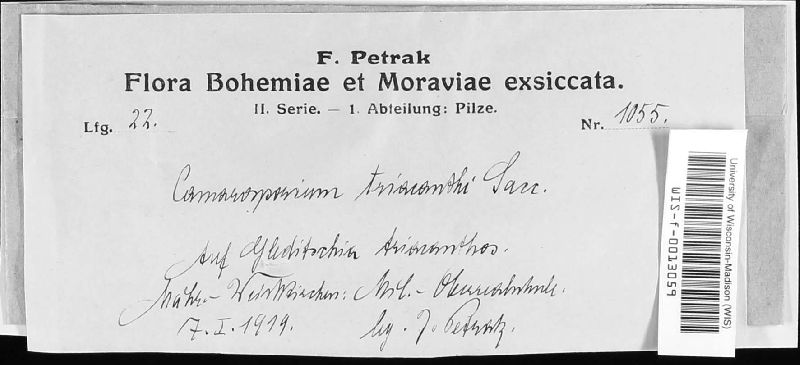 F. Petrak
Flora Bohemiae et Moraviae exsiccata.
II. Serie. — 1. Abteilung: Pilze.
Lfg. 22. Nr. 1055.
Camarosporium triacanthi Sacc.
Auf Gleditschia triacanthos.
Mähr.-Weisskirchen: Mil.-Oberrealschule.
7. I. 1914. leg. J. Petrak.
University of Wisconsin-Madison (WIS)
WIS-f-0013059